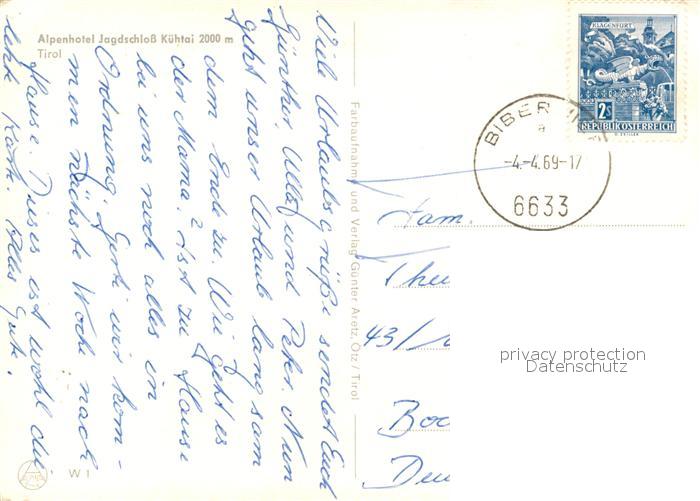 Alpenhotel Jagdschloß Kühtai 2000 m
Tirol
Viele Urlaubsgrüße sendet Euch
Günther, Ulla und Peter. Nun
geht unser Urlaub langsam
dem Ende zu. Wie geht es
der Mama? Ist zu Hause
bei uns noch alles in
Ordnung? Gerti wir kom-
men nächste Woche nach
Hause. Dieses ist wohl die
letzte Karte. Alles Gute.
W 1
Farbaufnahme und Verlag Günter Aretz, Ötz / Tirol
KLAGENFURT
2 S
REPUBLIK ÖSTERREICH
BIBER
a
-4.-4.69-17
6633
Fam.
43/
Boc
Deu
privacy protection
Datenschutz